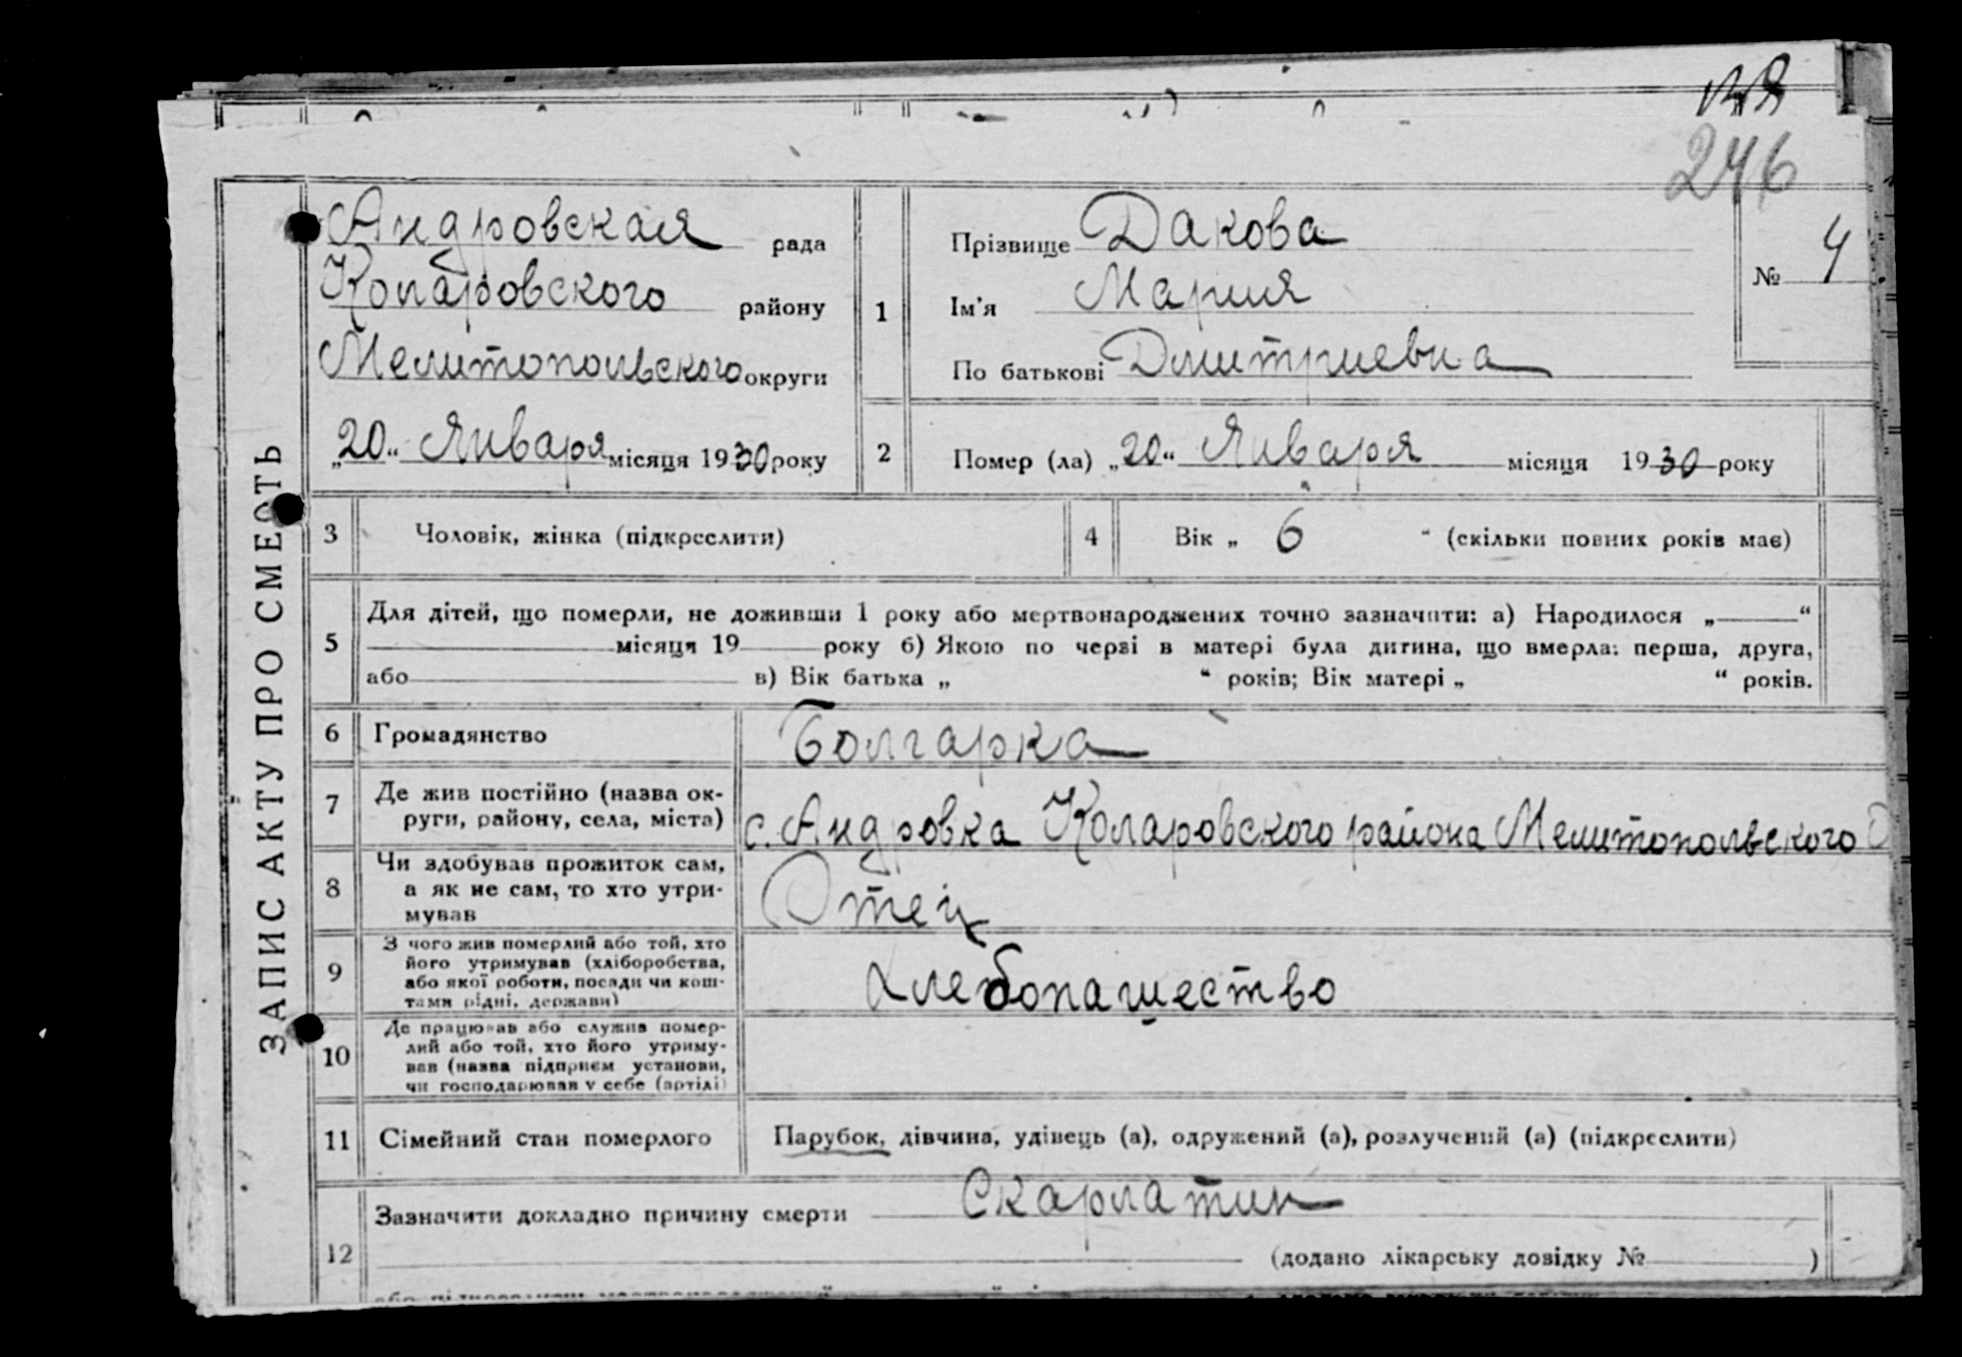 246
ЗАПИС АКТУ ПРО СМЕРТЬ
Андровская рада
Коларовского району
Мелитопольского округи
„20“ Января місяця 1930 року
1
Прізвище Дакова
Ім'я Мария
По батькові Дмитриевна
№ 4
2
Помер (ла) „20“ Января місяця 1930 року
3 Чоловік, жінка (підкреслити)
4 Вік „ 6 “ (скільки повних років має)
5
Для дітей, що померли, не доживши 1 року або мертвонароджених точно зазначити: а) Народилося „ “
місяця 19 року б) Якою по черзі в матері була дитина, що вмерла: перша, друга,
або в) Вік батька „ “ років; Вік матері „ “ років.
6 Громадянство Болгарка
7 Де жив постійно (назва ок-
руги, району, села, міста)
с. Андровка Коларовского района Мелитопольского О
8 Чи здобував прожиток сам,
а як не сам, то хто утри-
мував
Отец
9 З чого жив померлий або той, хто
його утримував (хліборобства,
або якої роботи, посади чи кош-
тами рідні, держави)
Хлебопашество
10 Де працював або служив помер-
лий або той, хто його утриму-
вав (назва підприєм установи,
чи господарював у себе (артілі)
11 Сімейний стан померлого Парубок, дівчина, удівець (а), одружений (а), розлучений (а) (підкреслити)
12 Зазначити докладно причину смерти Скарлатин
(додано лікарську довідку № )